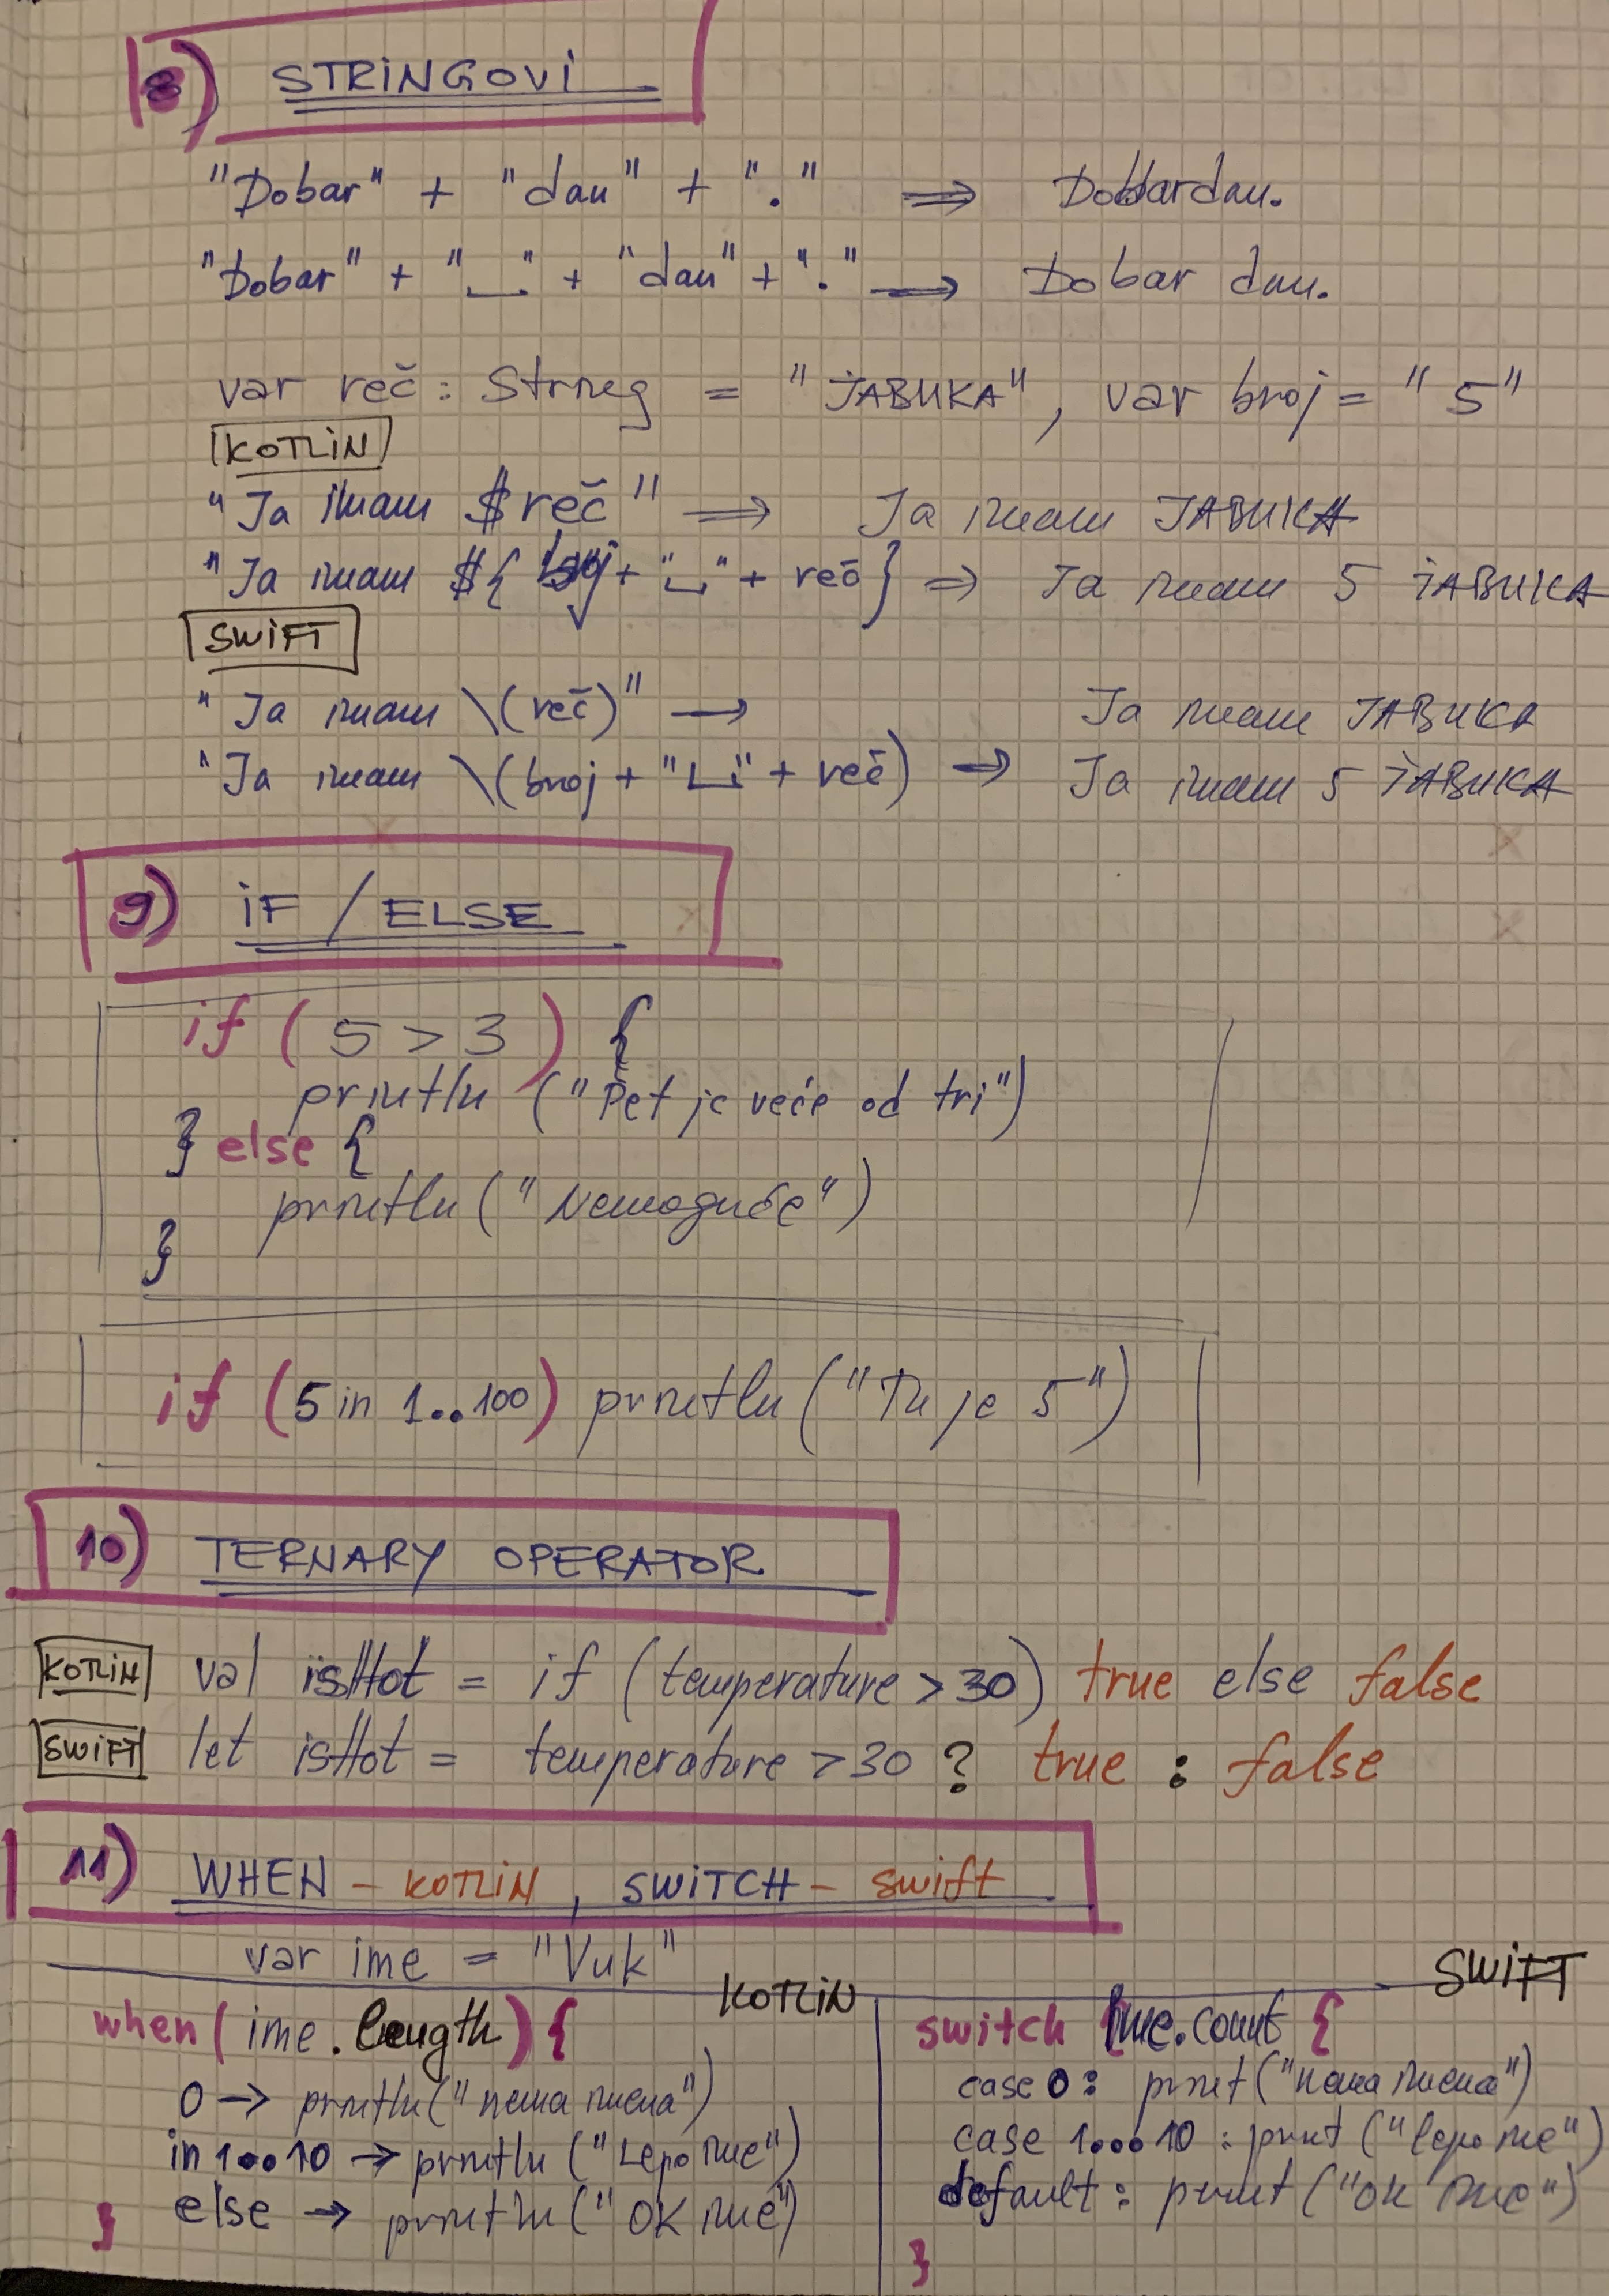 8) STRINGOVI
"Dobar" + "dan" + "." ⟹ Dobardan.
"Dobar" + "␣" + "dan" + "." ⟶ Dobar dan.
var reč: String = "JABUKA", var broj = "5"
KOTLIN
"Ja imam $reč" ⟹ Ja imam JABUKA
"Ja imam ${broj + "␣" + reč} ⟹ Ja imam 5 JABUKA
SWIFT
"Ja imam \(reč)" ⟶ Ja imam JABUKA
"Ja imam \(broj + "␣" + reč) ⟹ Ja imam 5 JABUKA
9) IF / ELSE
if ( 5 > 3 ) {
println ("Pet je veće od tri")
} else {
println ("Nemoguće")
}
if (5 in 1..100) println ("Tu je 5")
10) TERNARY OPERATOR
KOTLIN val isHot = if (temperature > 30) true else false
SWIFT let isHot = temperature > 30 ? true : false
11) WHEN - KOTLIN, SWITCH - Swift
var ime = "Vuk"
KOTLIN
when ( ime.length ) {
0 -> println("nema imena")
in 1..10 -> println ("Lepo ime")
else -> println ("OK ime")
}
SWIFT
switch ime.count {
case 0: print("nema imena")
case 1...10 : print ("lepo ime")
default : print ("OK ime")
}